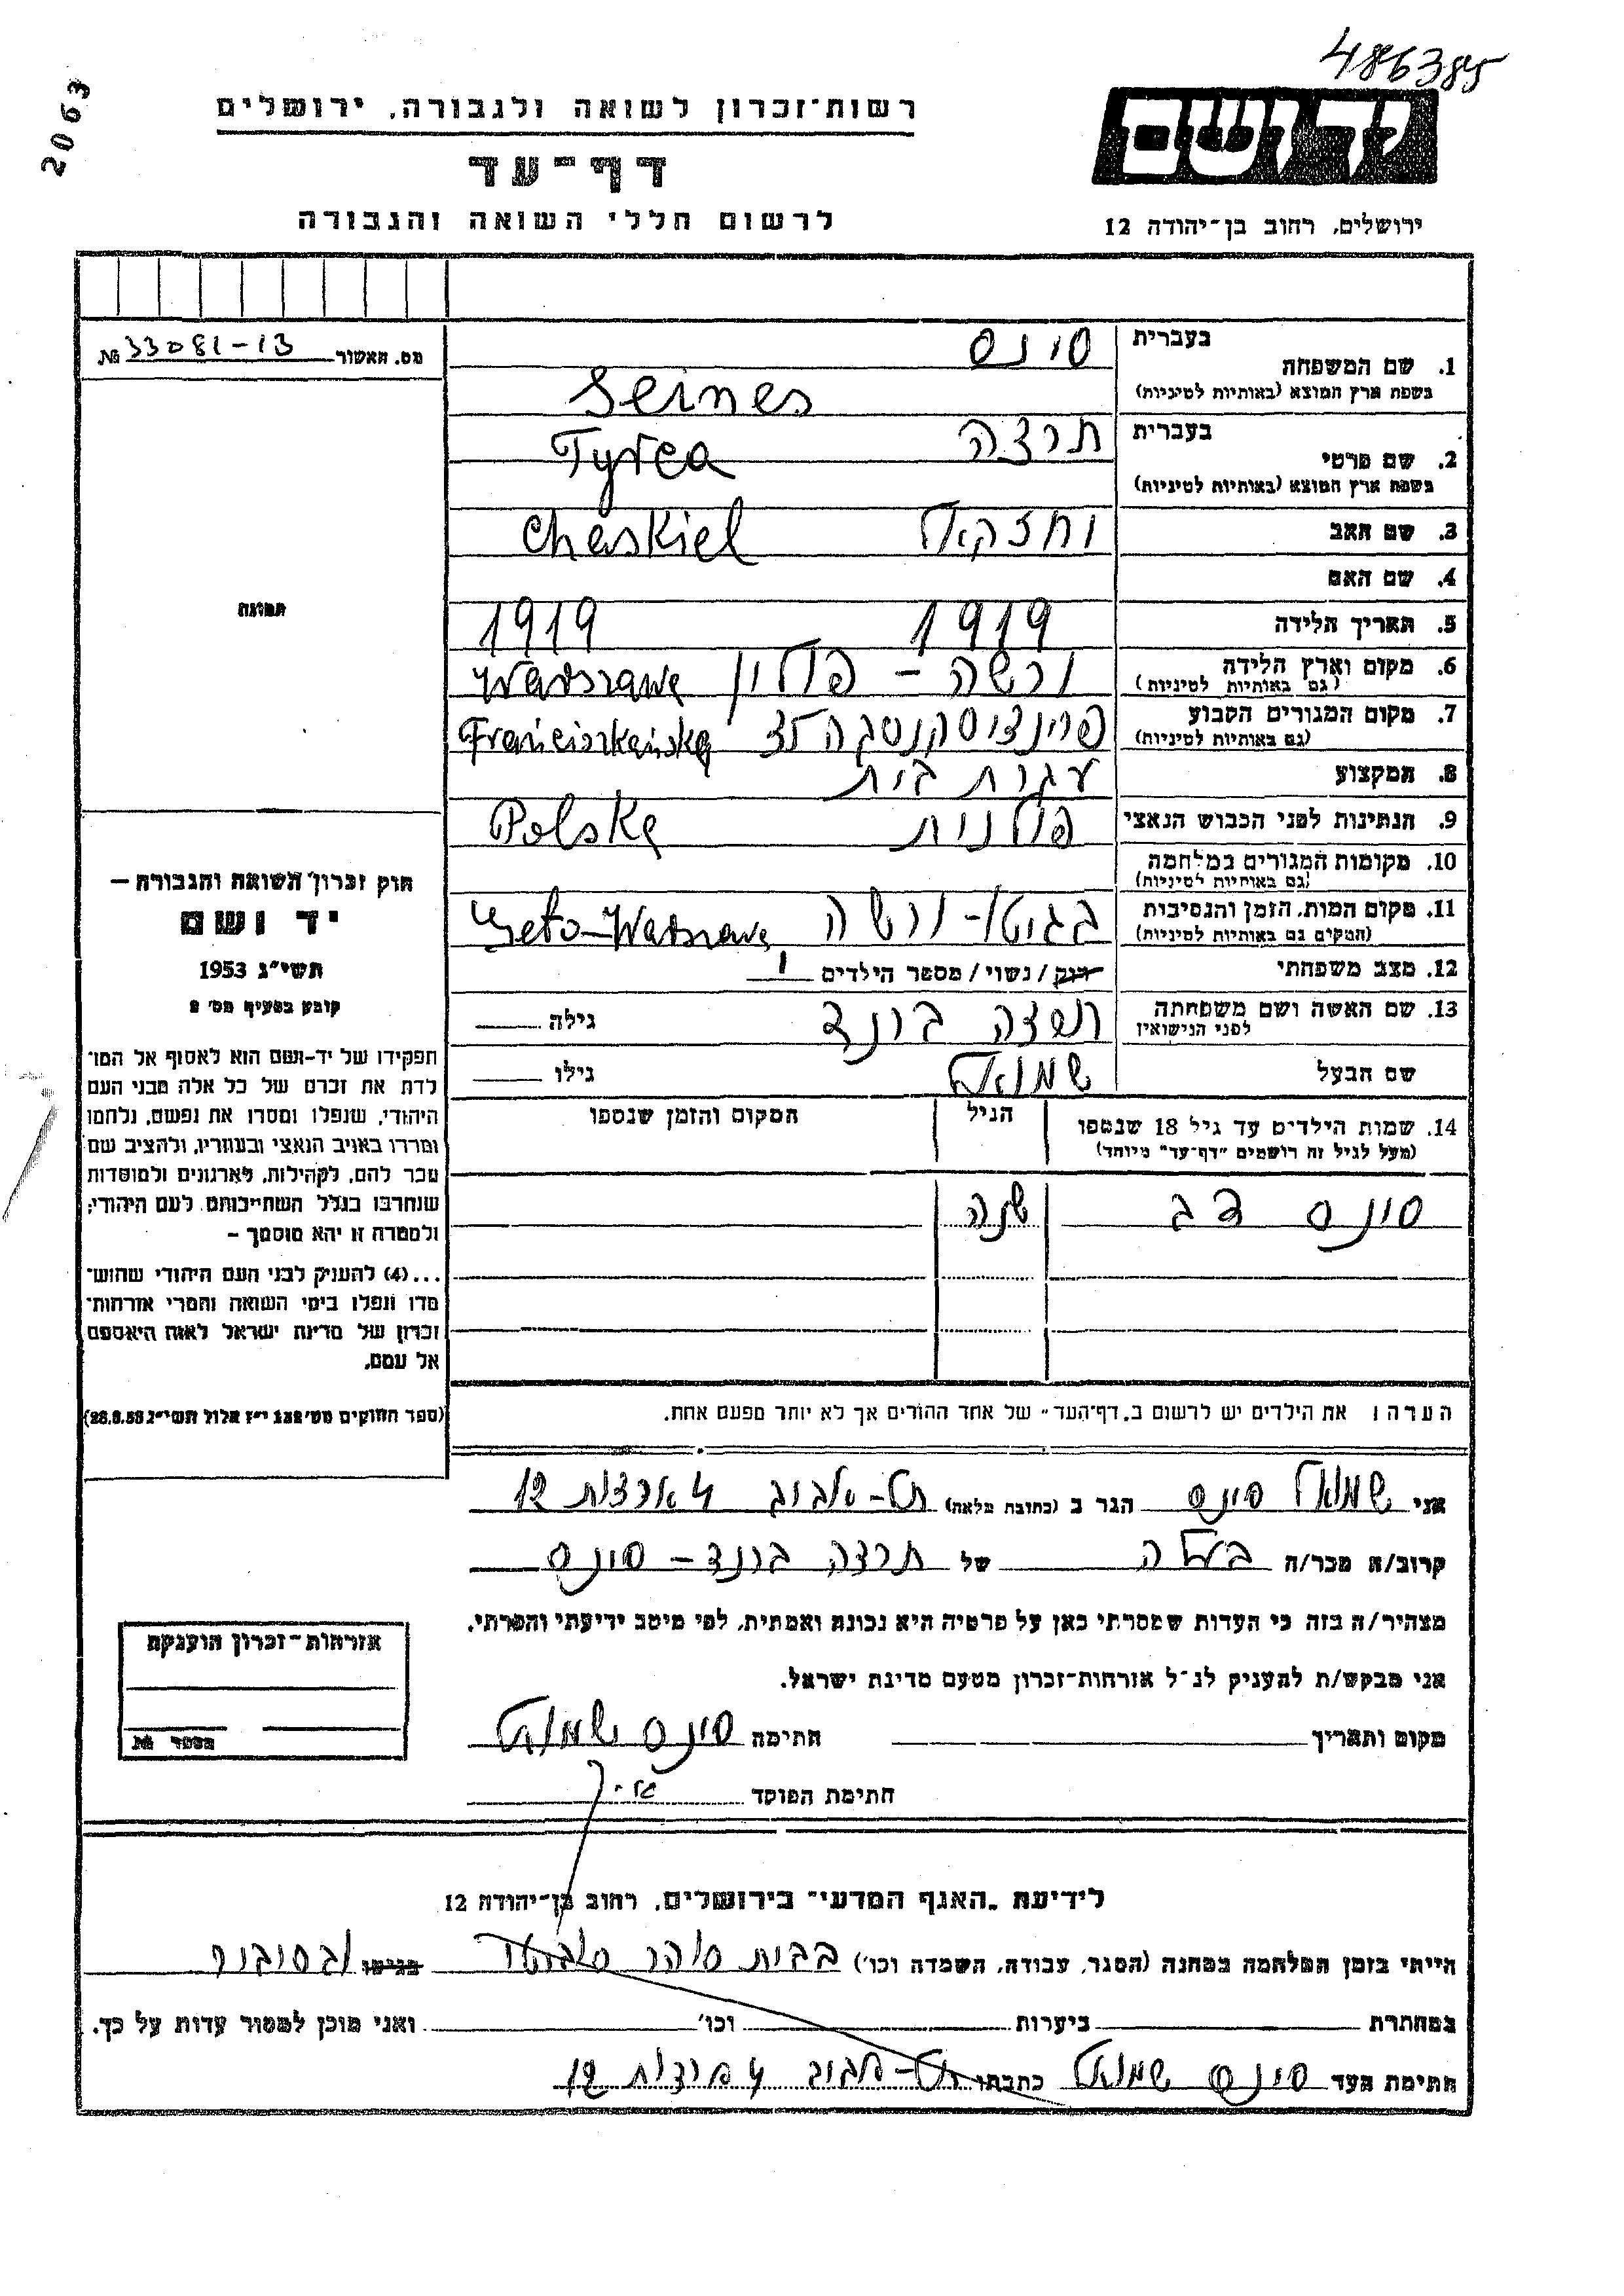 486385
2063
רשות־זכרון לשואה ולגבורה, ירושלים
יד ושם
דף־עד
לרשום חללי השואה והגבורה
ירושלים, רחוב בן־יהודה 12
מס. האשור 33081-13 №
תמונה
1. שם המשפחה בעברית סינס
בשפת ארץ המוצא (באותיות לטיניות) Seines
2. שם פרטי בעברית תרצה
בשפת ארץ המוצא (באותיות לטיניות) Tyrca
3. שם האב Chaskiel
4. שם האם
5. תאריך הלידה 1919 1919
6. מקום וארץ הלידה (גם באותיות לטיניות) ורשה - פולין Warszawa
7. מקום המגורים הקבוע (גם באותיות לטיניות) 35 Franciszkańska
8. המקצוע עקרת בית
9. הנתינות לפני הכבוש הנאצי פולנית Polska
10. מקומות המגורים במלחמה (גם באותיות לטיניות)
11. מקום המות, הזמן והנסיבות (המקום גם באותיות לטיניות) בגיטו - ורשה Geto-Warszawa
12. מצב משפחתי רווק / נשוי / מספר הילדים 1
13. שם האשה ושם משפחתה לפני הנישואין תרצה ברנד גילה
שם הבעל שמואל גילו
14. שמות הילדים עד גיל 18 שנספו הגיל המקום והזמן שנספו
(מעל לגיל זה רושמים "דף־עד" מיוחד)
סינס שנה
הערה: את הילדים יש לרשום ב"דף־העד" של אחד ההורים אך לא יותר מפעם אחת.
חוק זכרון השואה והגבורה —
יד ושם
תשי"ג 1953
קובע בסעיף מס' 2
תפקידו של יד־ושם הוא לאסוף אל המו־
לדת את זכרם של כל אלה מבני העם
היהודי, שנפלו ומסרו את נפשם, נלחמו
ומרדו באויב הנאצי ובעוזריו, ולהציב שם
וזכר להם, לקהילות, לארגונים ולמוסדות
שנחרבו בגלל השתייכותם לעם היהודי;
ולמטרה זו יהא מוסמך —
...(4) להעניק לבני העם היהודי שהוש־
מדו ונפלו בימי השואה והמרי אזרחות־
זכרון של מדינת ישראל לאות היאספם
אל עמם.
(ספר החוקים מס' 132 י"ז אלול תשי"ג 28.8.53)
אני שמואל סינס הגר ב (כתובת מלאה) תל-אביב 12
קרוב/ה מכר/ה בעלה של תרצה ברנד - סינס
מצהיר/ה בזה כי העדות שמסרתי כאן על פרטיה היא נכונה ואמתית, לפי מיטב ידיעתי והכרתי.
אני מבקש/ת להעניק לנ"ל אזרחות־זכרון מטעם מדינת ישראל.
מקום ותאריך חתימה סינס שמואל
חתימת הפוקד
אזרחות־זכרון הוענקה
מספר №
לידיעת "האגף המדעי" בירושלים, רחוב בן־יהודה 12
הייתי בזמן המלחמה במחנה (הסגר, עבודה, השמדה וכו') בבית סוהר בגיטו
במחתרת ביערות וכו' ואני מוכן למסור עדות על כך.
חתימת העד סינס שמואל כתבתו תל-אביב 12